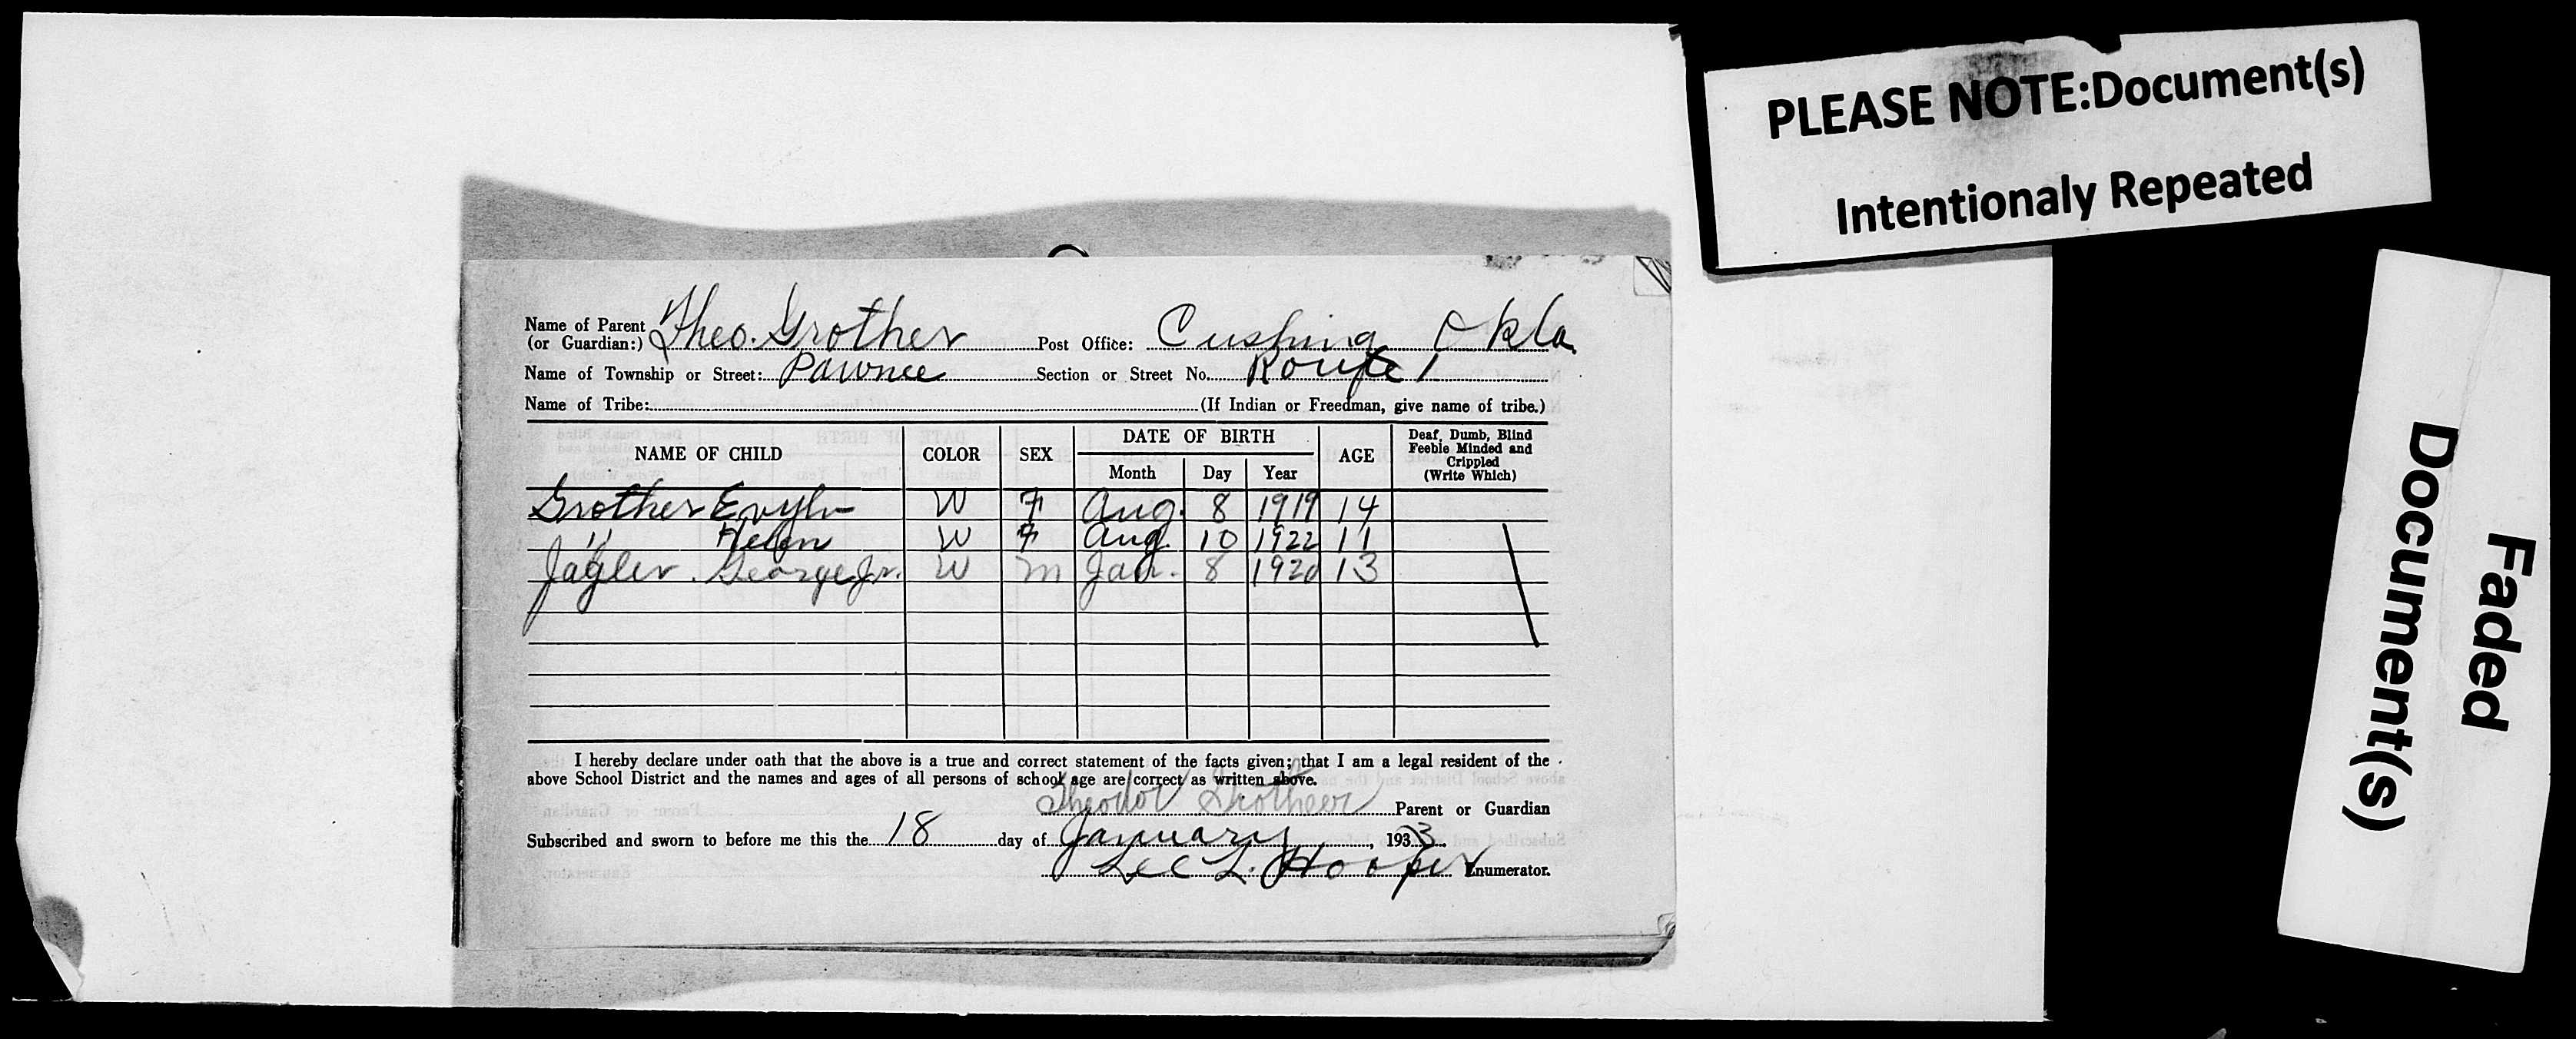 PLEASE NOTE:Document(s)
Intentionaly Repeated
Faded
Document(s)
Name of Parent (or Guardian:) Theo. Grother Post Office: Cushing Okla.
Name of Township or Street: Pawnee Section or Street No. Route 1
Name of Tribe: (If Indian or Freedman, give name of tribe.)
NAME OF CHILD COLOR SEX DATE OF BIRTH Month Day Year AGE Deaf, Dumb, Blind Feeble Minded and Crippled (Write Which)
Grother Evyln W F Aug. 8 1919 14
" Helen W F Aug. 10 1922 11
Jagler George Jr. W M Jan. 8 1920 13
I hereby declare under oath that the above is a true and correct statement of the facts given; that I am a legal resident of the
above School District and the names and ages of all persons of school age are correct as written above.
Theodor Grotheer Parent or Guardian
Subscribed and sworn to before me this the 18 day of January, 1933.
Lee L. Hooper Enumerator.